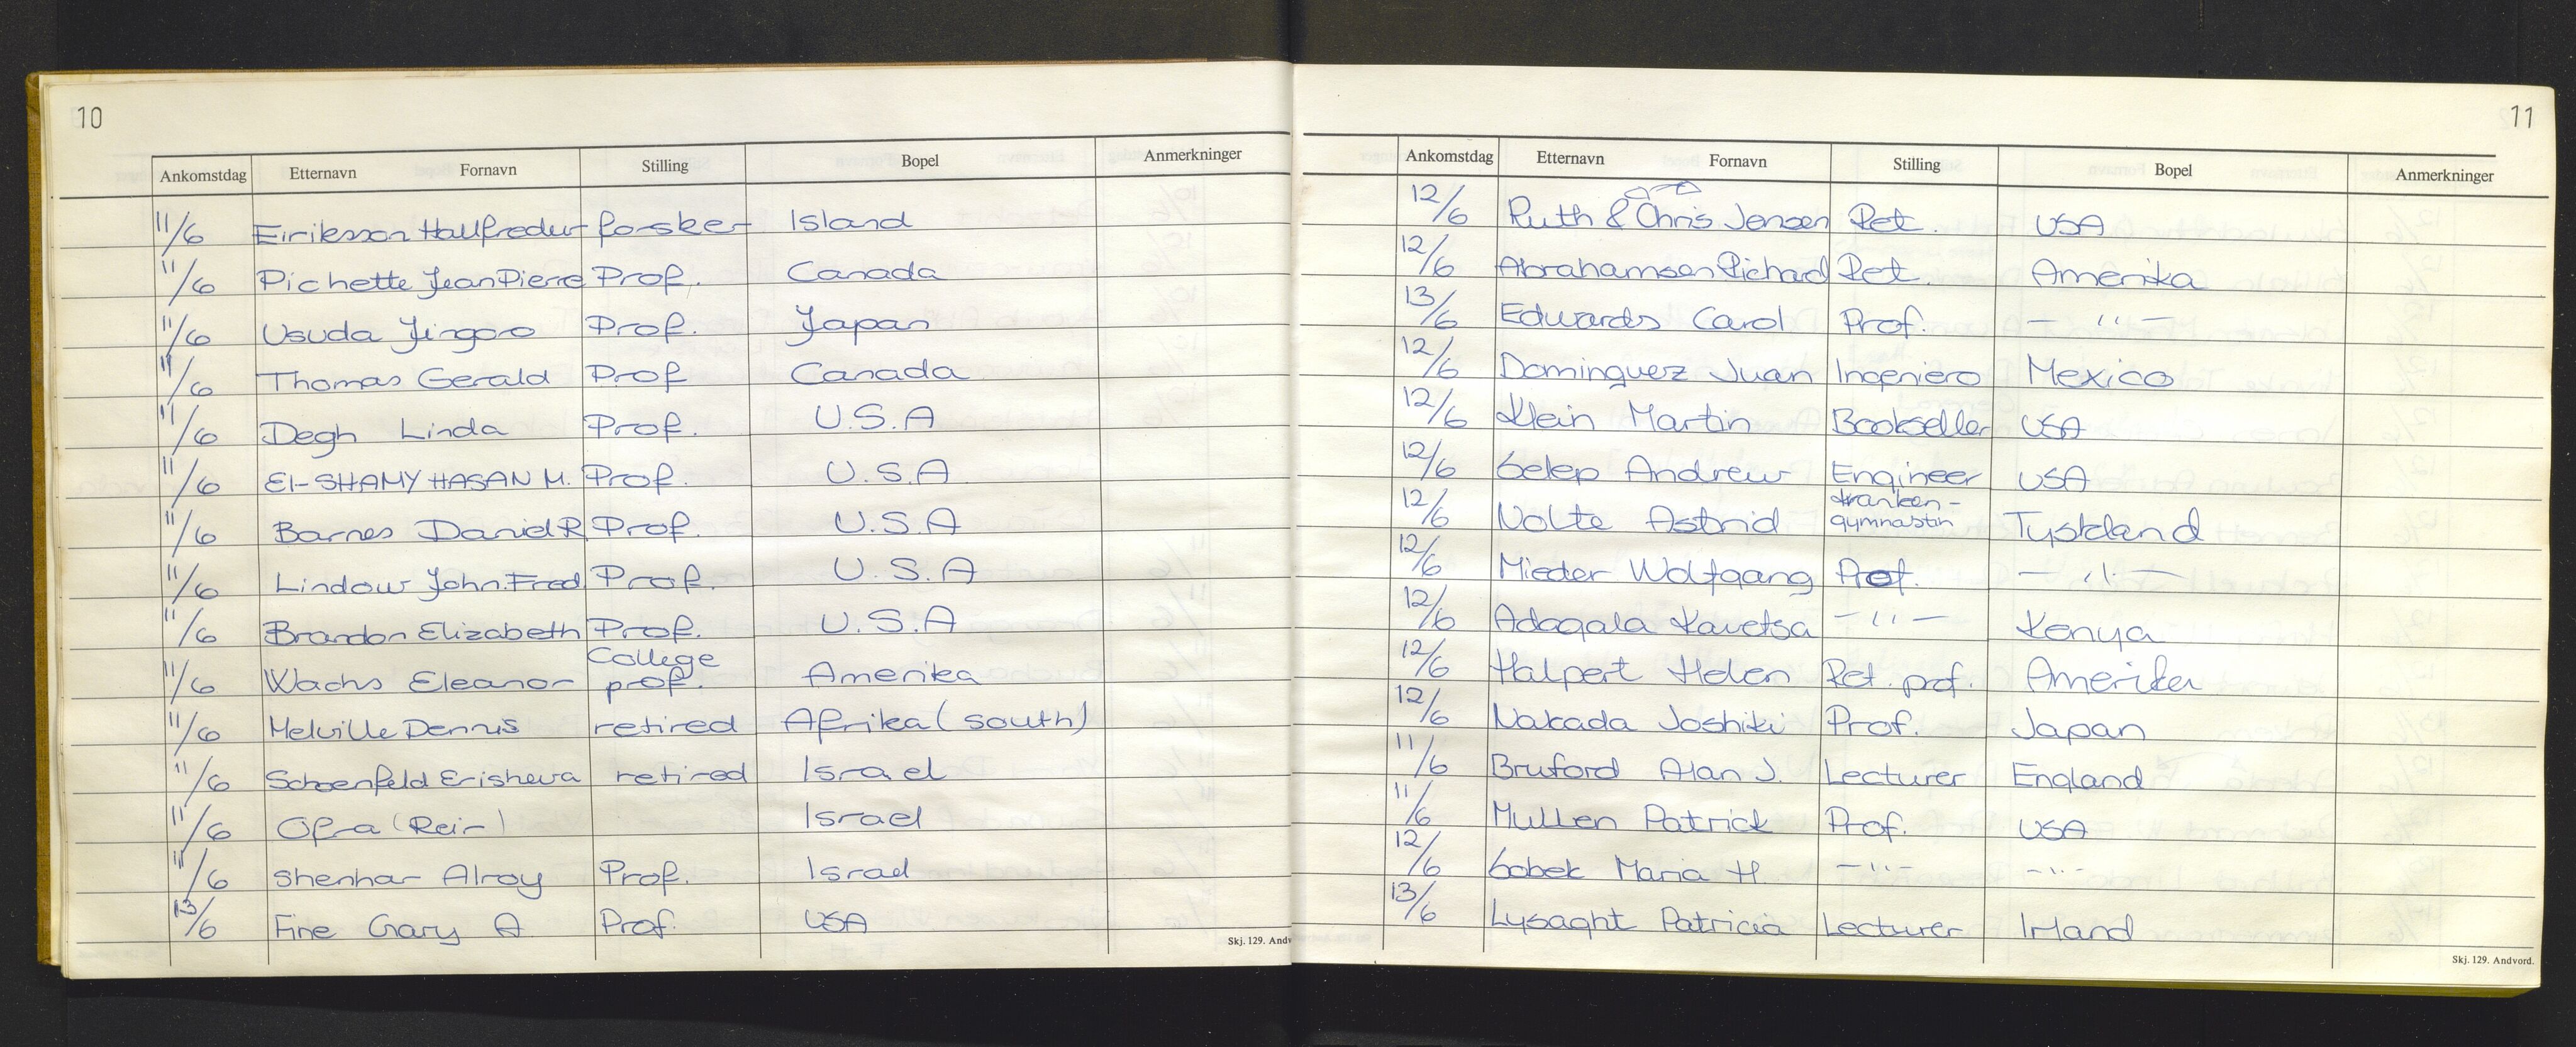 10
Ankomstdag Etternavn Fornavn Stilling Bopel Anmerkninger
11/6 Eiriksson Hallfredur forsker Island
11/6 Pichette Jean Pierre Prof. Canada
11/6 Usuda Jingoro Prof. Japan
11/6 Thomas Gerald Prof Canada
11/6 Degh Linda Prof. U.S.A
11/6 El-SHAMY HASAN M. Prof. U.S.A
11/6 Barnes Daniel R Prof. U.S.A
11/6 Lindow John.Fred Prof. U.S.A
11/6 Brandon Elizabeth Prof. U.S.A
11/6 Wachs Eleanor College prof. Amerika
11/6 Melville Dennis retired Afrika (south)
11/6 Schoenfeld Erisheva retired Israel
11/6 Ofra (Reir) Israel
11/6 Shenhar Alroy Prof. Israel
13/6 Fine Gary A Prof. USA
Skj. 129. Andv
11
Ankomstdag Etternavn Fornavn Stilling Bopel Anmerkninger
12/6 Ruth & Chris Jensen Ret. USA
12/6 Abrahamsen Richard Ret. Amerika
13/6 Edwards Carol Prof. — " —
12/6 Dominguez Juan Ingeniero Mexico
12/6 Klein Martin Bookseller USA
12/6 Gelep Andrew Engineer USA
12/6 Nolte Astrid Kranken-gymnastin Tyskland
12/6 Mieder Wolfgang Prof. — " —
12/6 Adagala Kavetsa — " — Kenya
12/6 Halpert Helen Ret. prof. Amerika
12/6 Nakada Joshiki Prof. Japan
11/6 Bruford Alan J. Lecturer England
11/6 Mullen Patrick Prof. USA
12/6 Bobek Maria H. — " — — " —
13/6 Lysaght Patricia Lecturer Irland
Skj. 129. Andvord.